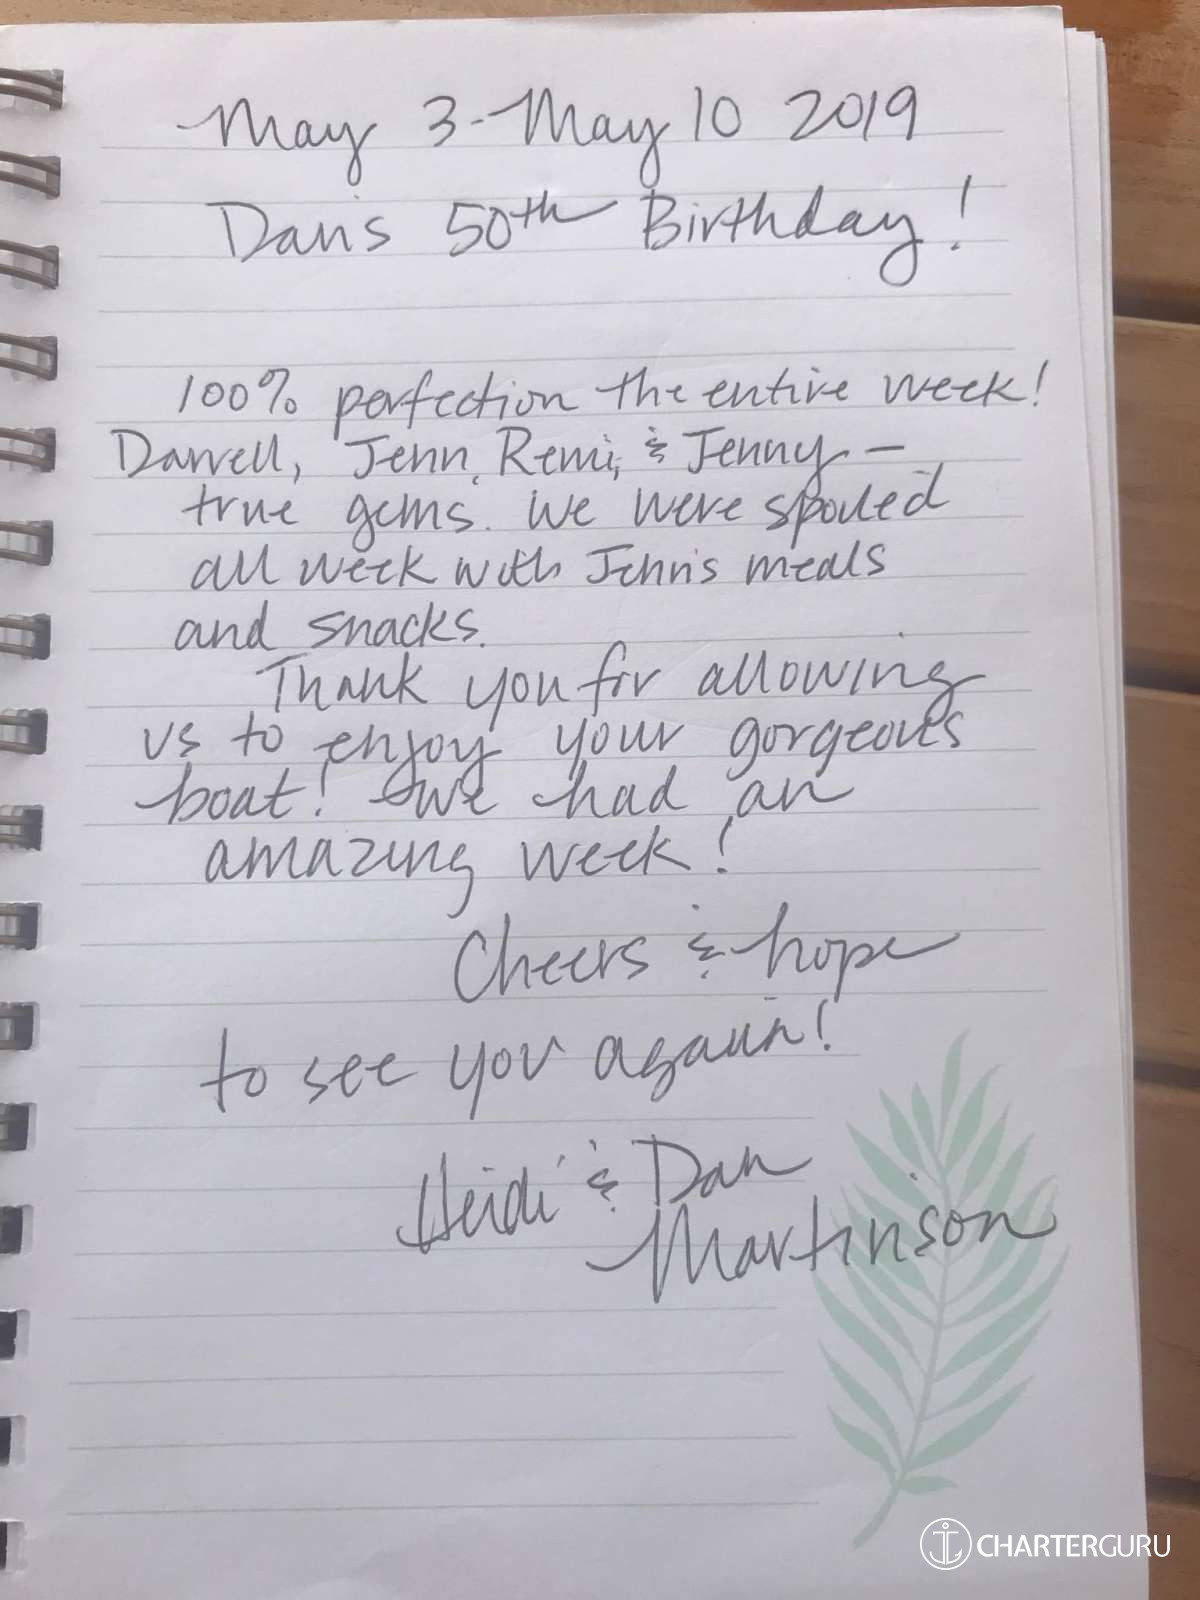 May 3 - May 10 2019
Dan's 50th Birthday!
100% perfection the entire week!
Darrell, Jenn, Remi, & Jenny —
true gems. We were spoiled
all week with Jenn's meals
and snacks.
Thank you for allowing
us to enjoy your gorgeous
boat! We had an
amazing week!
Cheers & hope
to see you again!
Heidi & Dan
Martinson
CHARTERGURU